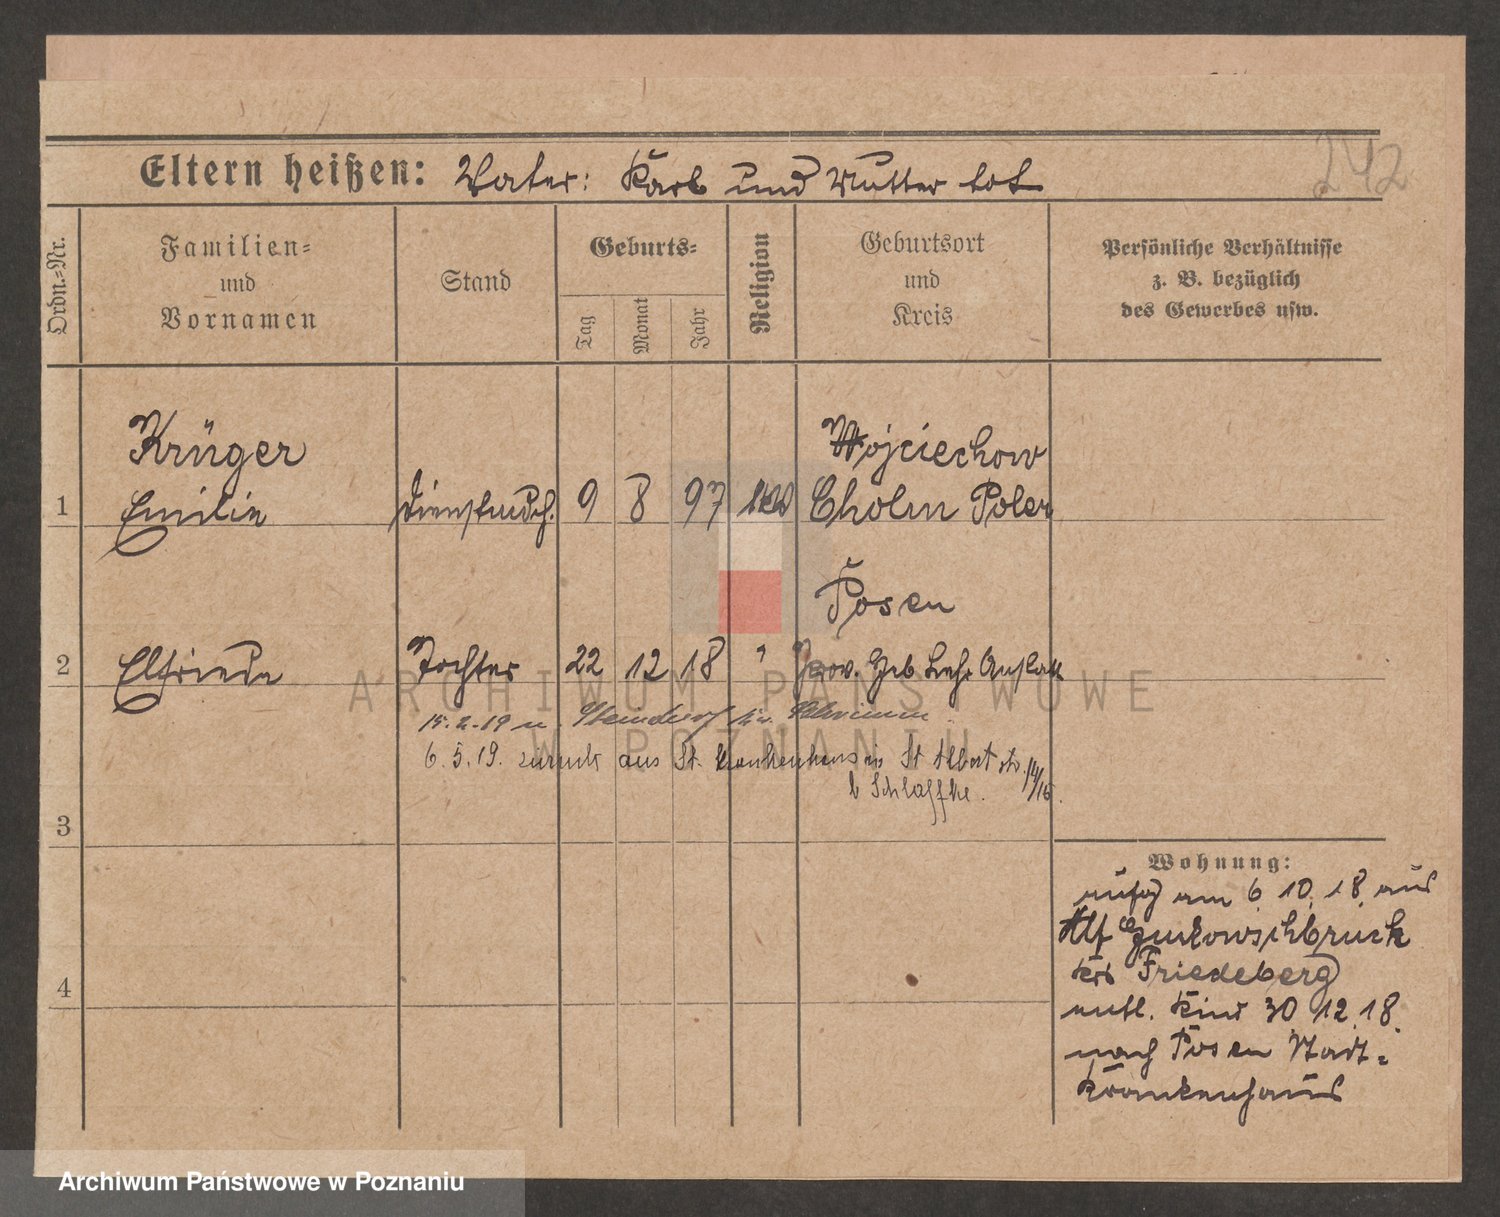 242
Eltern heißen: Vater: Karl und Mutter tot
Ordn.=Nr.
Familien=
und
Vornamen
Stand
Geburts=
Tag
Monat
Jahr
Religion
Geburtsort
und
Kreis
Persönliche Verhältnisse
z. B. bezüglich
des Gewerbes usw.
Krüger
Wojciechow
1 Emilie Dienstmdch. 9 8 97 Cholm Polen
Posen
2 Elfriede Tochter 22 12 18 " Prov. Heb. Lehr Anstalt
15.2.19 n.
6.5.19. zurück aus St. Krankenhaus in St Albert str. 14/15
b Schlaffke.
3
4
Wohnung:
am 6 10. 18. aus
krs Friedeberg
Kind 30 12. 18.
nach Posen Stadt=
Krankenhaus
ARCHIWUM PAŃSTWOWE
W POZNANIU
Archiwum Państwowe w Poznaniu